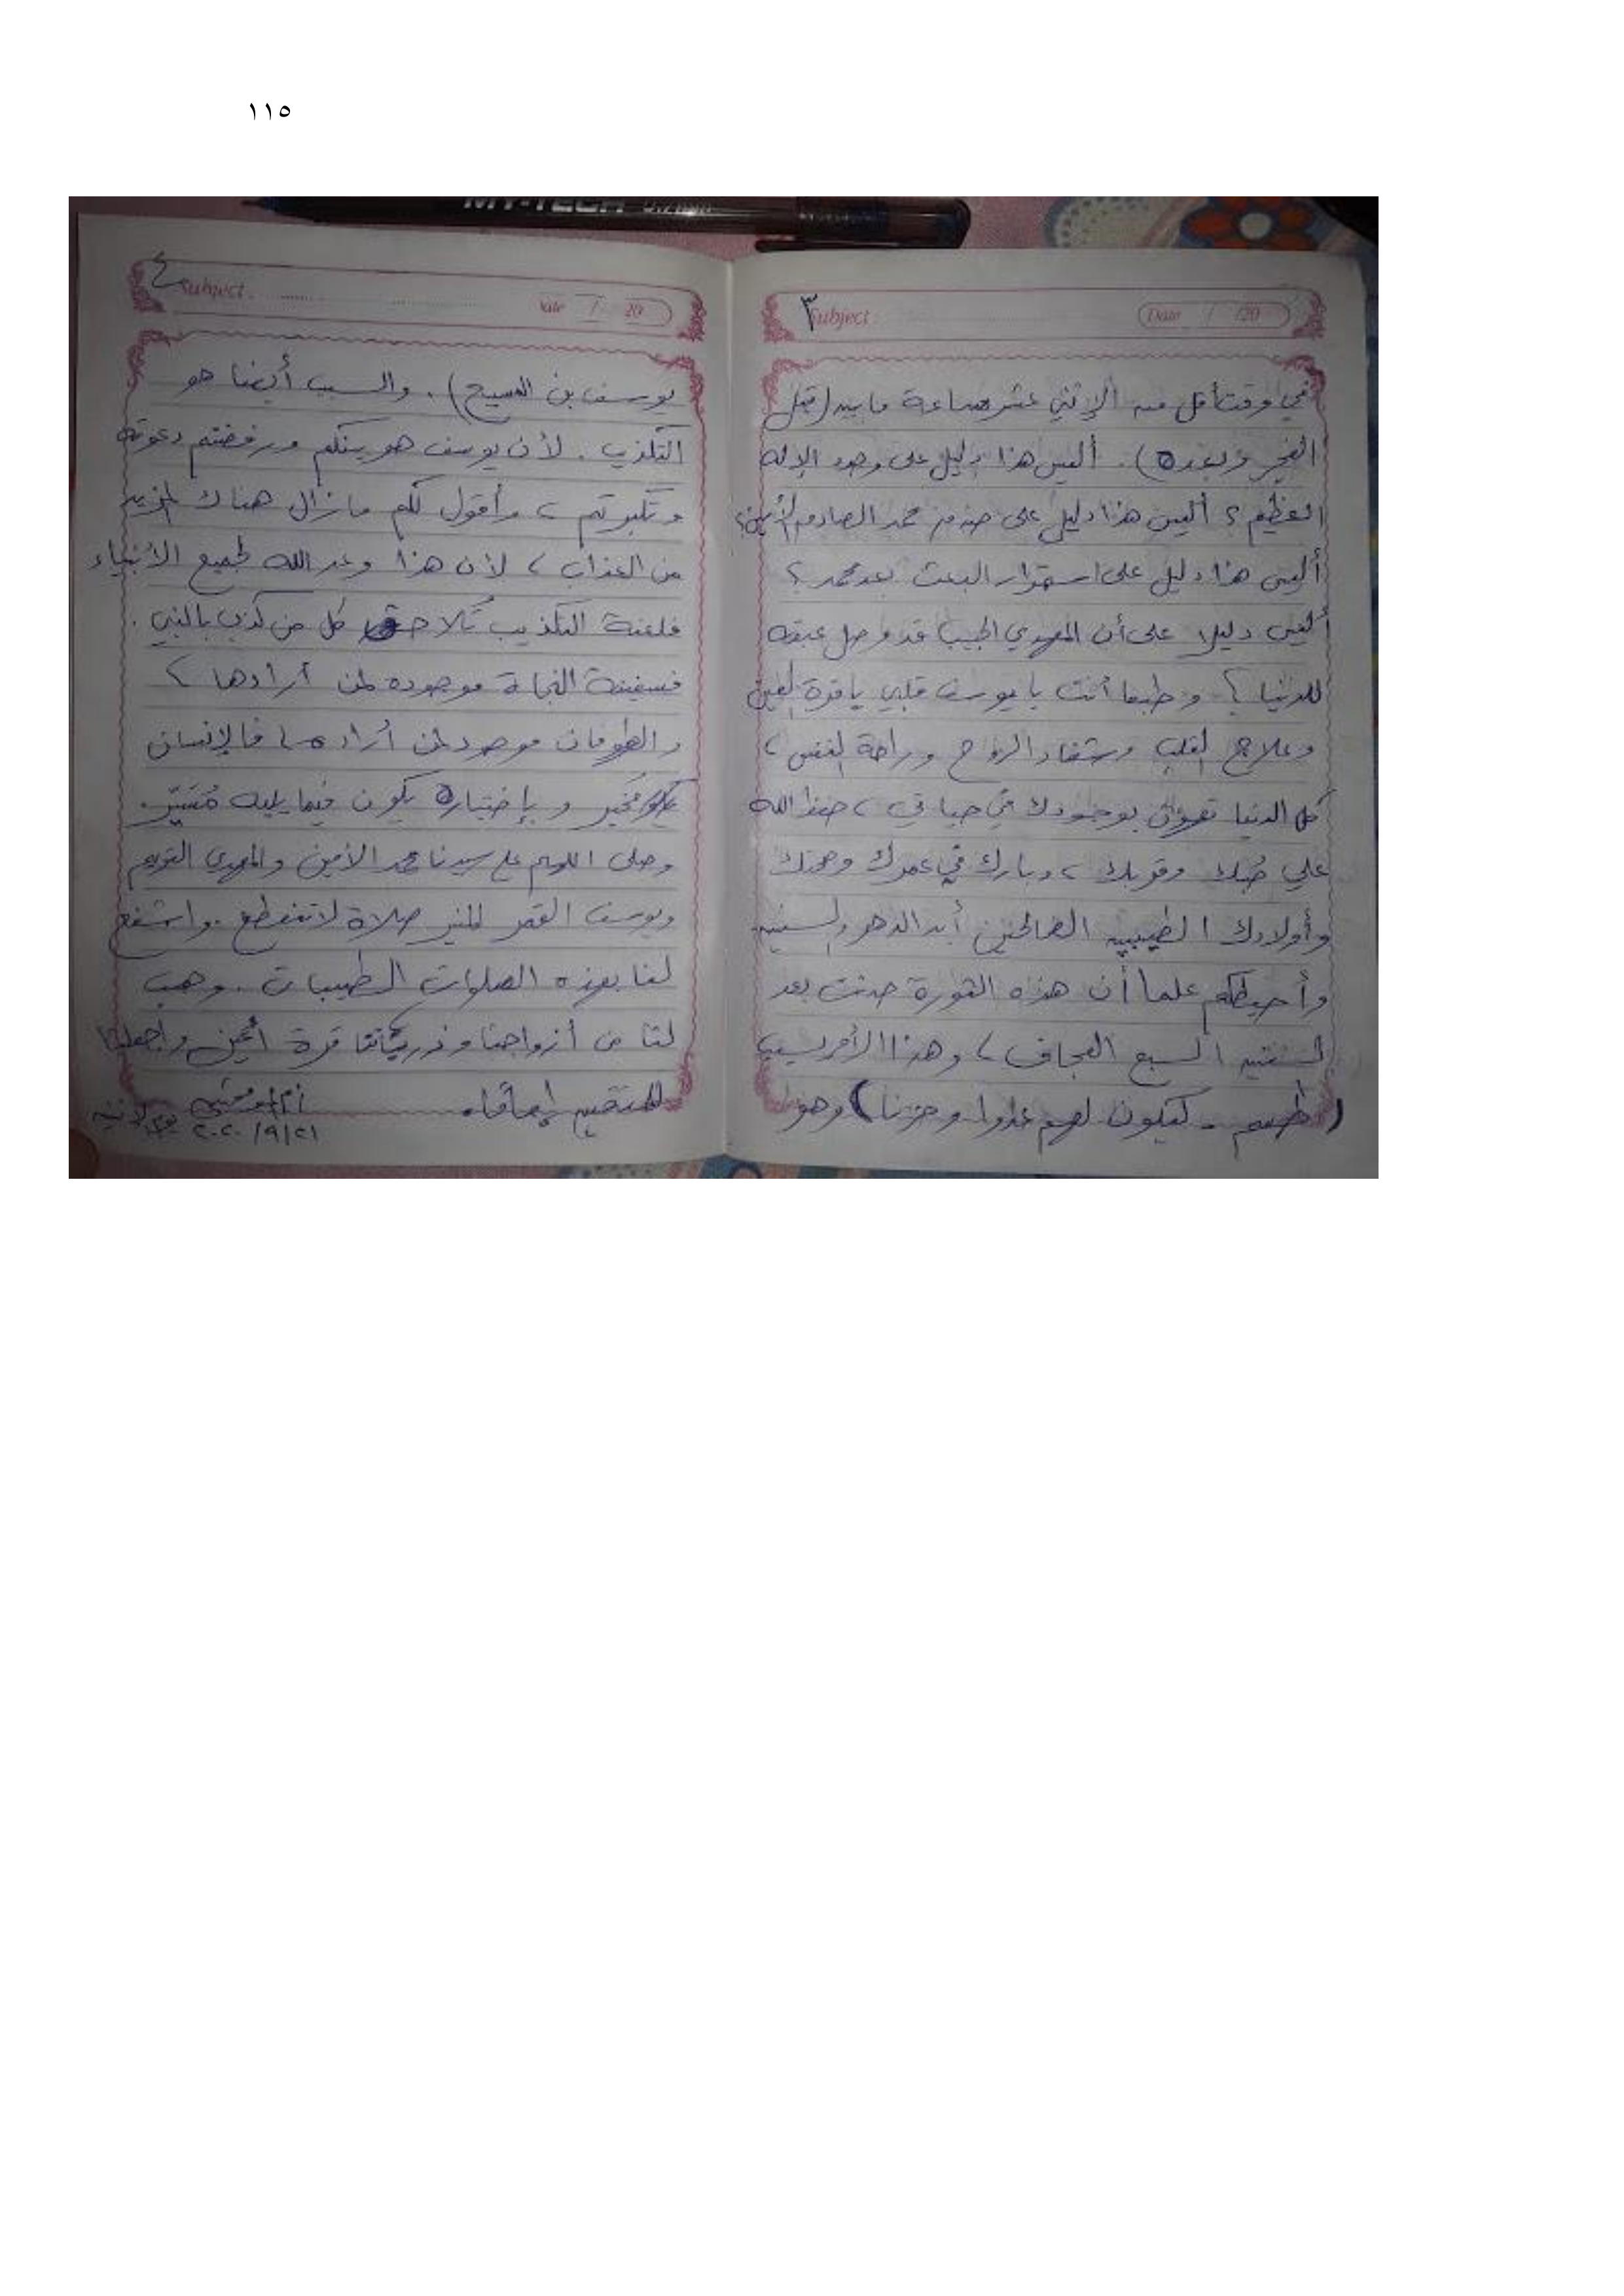 ١١٥
MY-TECH
٣
Subject
Date / /20
في وقت أقل من الإثني عشر ساعة ما بين (قبل
الفجر وبعده). أليس هذا دليل على وجود الإله
العظيم؟ أليس هذا دليل على صدق محمد الصادق الأمين؟
أليس هذا دليل على استمرار البعث بعد محمد؟
أليس دليلا على أن المهدي الحبيب قد وصل عبقه
للدنيا؟ وطبعا أنت يا يوسف قلبي يا قرة العين
وعلاج القلب وشفاء الروح وراحة النفس،
كل الدنيا تهون بوجودك في حياتي، حفظ الله
علي حبك وقربك، وبارك في عمرك وصحتك
وأولادك الطيبين الصالحين أبد الدهر والسنين
وأحيطكم علما أن هذه الثورة حدثت بعد
السنين السبع العجاف، وهذا الأمر بسبب
(طسم - ليكون لهم عدوا وحزنا) وهو
٤
Subject
Date / 20
يوسف بن المسيح). والسبب أيضا هو
التكذيب. لأن يوسف هو بينكم ورفضتم دعوته
وتكبرتم، وأقول لكم مازال هناك المزيد
من العذاب، لأن هذا وعد الله لجميع الأنبياء
فلعنة التكذيب تلاحق كل من كذب بالنبي.
فسفينة النجاة موجوده لمن أرادها،
والطوفان موجود لمن أراده، فالإنسان
مُخير وبإختياره يكون فيما يليه مُسَيّر.
وصلى اللهم على سيدنا محمد الأمين والمهدي القويم
ويوسف القمر المنير صلاة لا تنقطع. واشفع
لنا بهذه الصلوات الطيبات. وهب
لنا من أزواجنا وذرياتنا قرة أعين واجعلنا
للمتقين إماما.
٢٠٢٠/٩/٢١